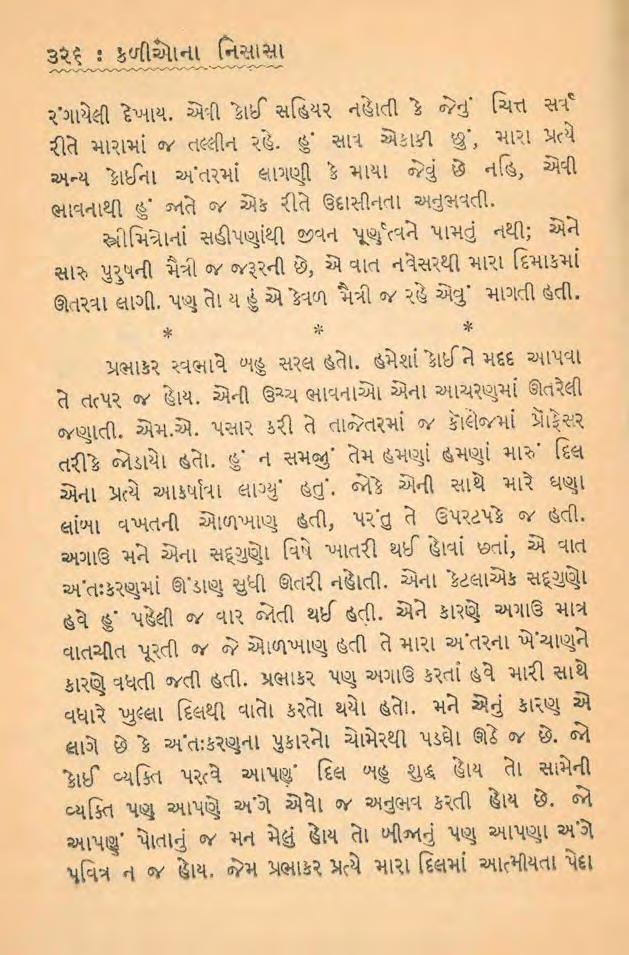 ૩૨૬ : કળીઓના નિસાસા
રંગાયેલી દેખાય. એવી કોઈ સહિયર નહોતી કે જેનું ચિત્ત સર્વ
રીતે મારામાં જ તલ્લીન રહે. હું સાવ એકાકી છું, મારા પ્રત્યે
અન્ય કોઈના અંતરમાં લાગણી કે માયા જેવું છે નહિ, એવી
ભાવનાથી હું જાતે જ એક રીતે ઉદાસીનતા અનુભવતી.
સ્ત્રીમિત્રોનાં સહીપણાંથી જીવન પૂર્ણત્વને પામતું નથી; એને
સારુ પુરુષની મૈત્રી જ જરૂરની છે, એ વાત નવેસરથી મારા દિમાકમાં
ઊતરવા લાગી. પણ તો ય હું એ કેવળ મૈત્રી જ રહે એવું માગતી હતી.
* * *
પ્રભાકર સ્વભાવે બહુ સરલ હતો. હમેશાં કોઈને મદદ આપવા
તે તત્પર જ હોય. એની ઉચ્ચ ભાવનાઓ એના આચરણમાં ઊતરેલી
જણાતી. એમ.એ. પસાર કરી તે તાજેતરમાં જ કૉલેજમાં પ્રોફેસર
તરીકે જોડાયો હતો. હું ન સમજું તેમ હમણાં હમણાં મારું દિલ
એના પ્રત્યે આકર્ષાવા લાગ્યું હતું. જોકે એની સાથે મારે ઘણા
લાંબા વખતની ઓળખાણ હતી, પરંતુ તે ઉપરટપકે જ હતી.
અગાઉ મને એના સદ્‌ગુણો વિષે ખાતરી થઈ હોવાં છતાં, એ વાત
અંતઃકરણમાં ઊંડાણ સુધી ઊતરી નહોતી. એના કેટલાએક સદ્‌ગુણો
હવે હું પહેલી જ વાર જોતી થઈ હતી. એને કારણે અગાઉ માત્ર
વાતચીત પૂરતી જ જે ઓળખાણ હતી તે મારા અંતરના ખેંચાણને
કારણે વધતી જતી હતી. પ્રભાકર પણ અગાઉ કરતાં હવે મારી સાથે
વધારે ખુલ્લા દિલથી વાતો કરતો થયો હતો. મને એનું કારણ એ
લાગે છે કે અંતઃકરણના પુકારનો ચોમેરથી પડઘો ઊઠે જ છે. જો
કોઈ વ્યક્તિ પરત્વે આપણું દિલ બહુ શુદ્ધ હોય તો સામેની
વ્યક્તિ પણ આપણે અંગે એવો જ અનુભવ કરતી હોય છે. જો
આપણું પોતાનું જ મન મેલું હોય તો બીજાનું પણ આપણા અંગે
પવિત્ર ન જ હોય. જેમ પ્રભાકર પ્રત્યે મારા દિલમાં આત્મીયતા પેદા